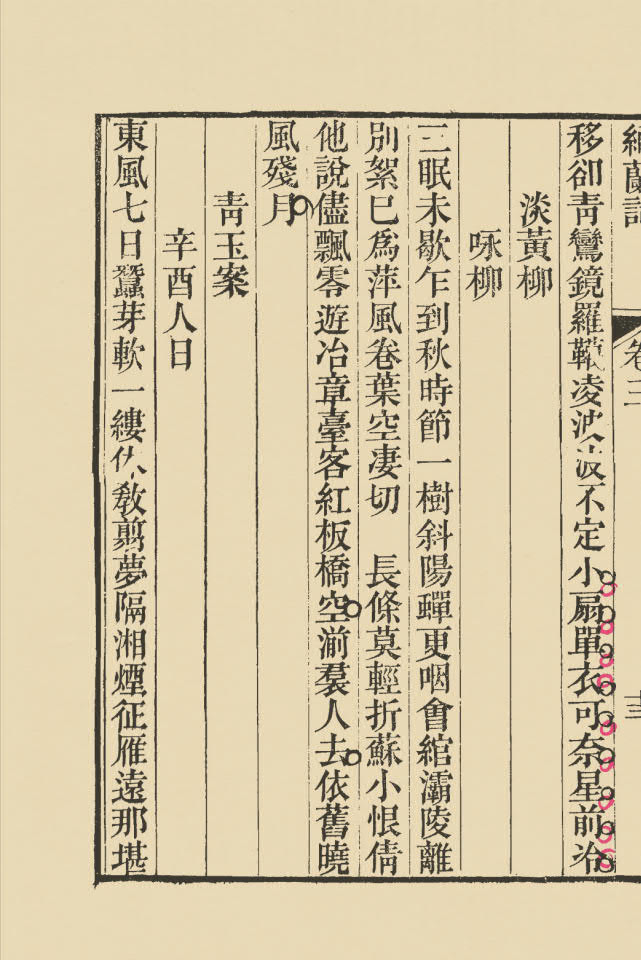 蘭詞 卷三
移卻靑鸞鏡羅韈凌波波不定小扇單衣可奈星前冷
淡黃柳
咏柳
三眠未歇乍到秋時節一樹斜陽蟬更咽曾綰灞陵離
別絮已爲萍風卷葉空淒切　長條莫輕折蘇小恨倩
他說儘飄零遊冶章臺客紅板橋空湔羣人去依舊曉
風殘月
靑玉案
辛酉人日
東風七日蠶芽軟一縷休敎翦夢隔湘煙征雁遠那堪